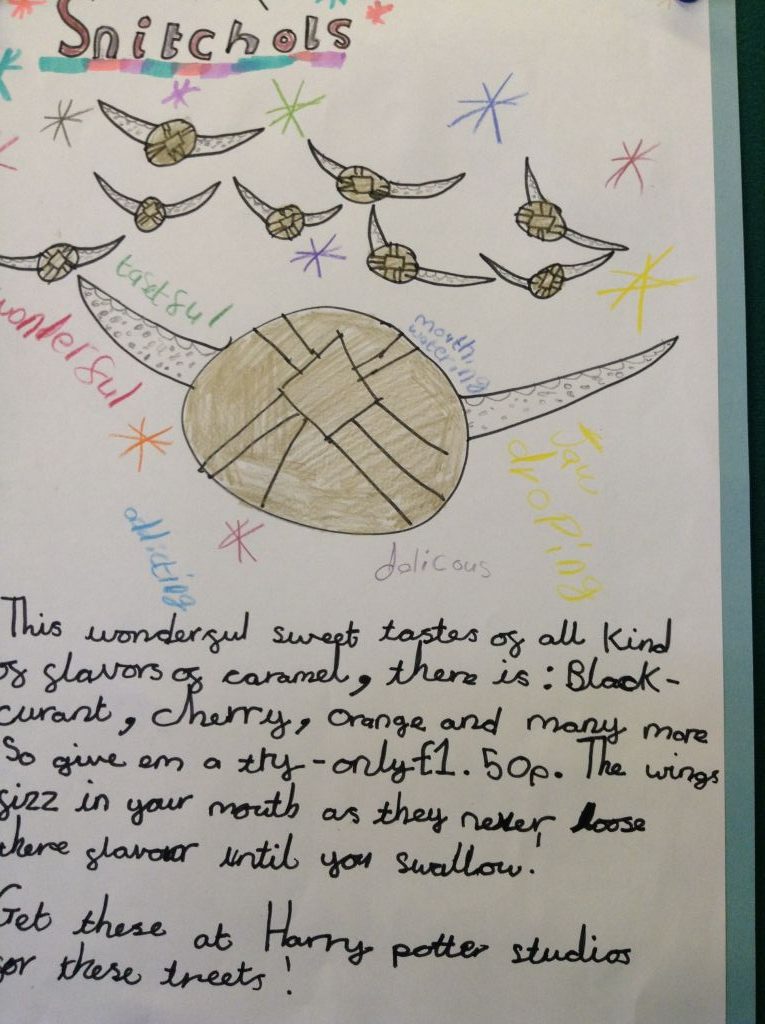 Snitchols
tastful
wonderful
mouth
watering
Jaw
droping
addicting
dolicous
This wonderful sweet tastes of all kind
of flavors of caramel, there is: Black-
curant, cherry, orange and many more
So give em a try - only £1.50p. The wings
fizz in your mouth as they never loose
there flavour until you swallow!
Get these at Harry potter studios
for these treets!